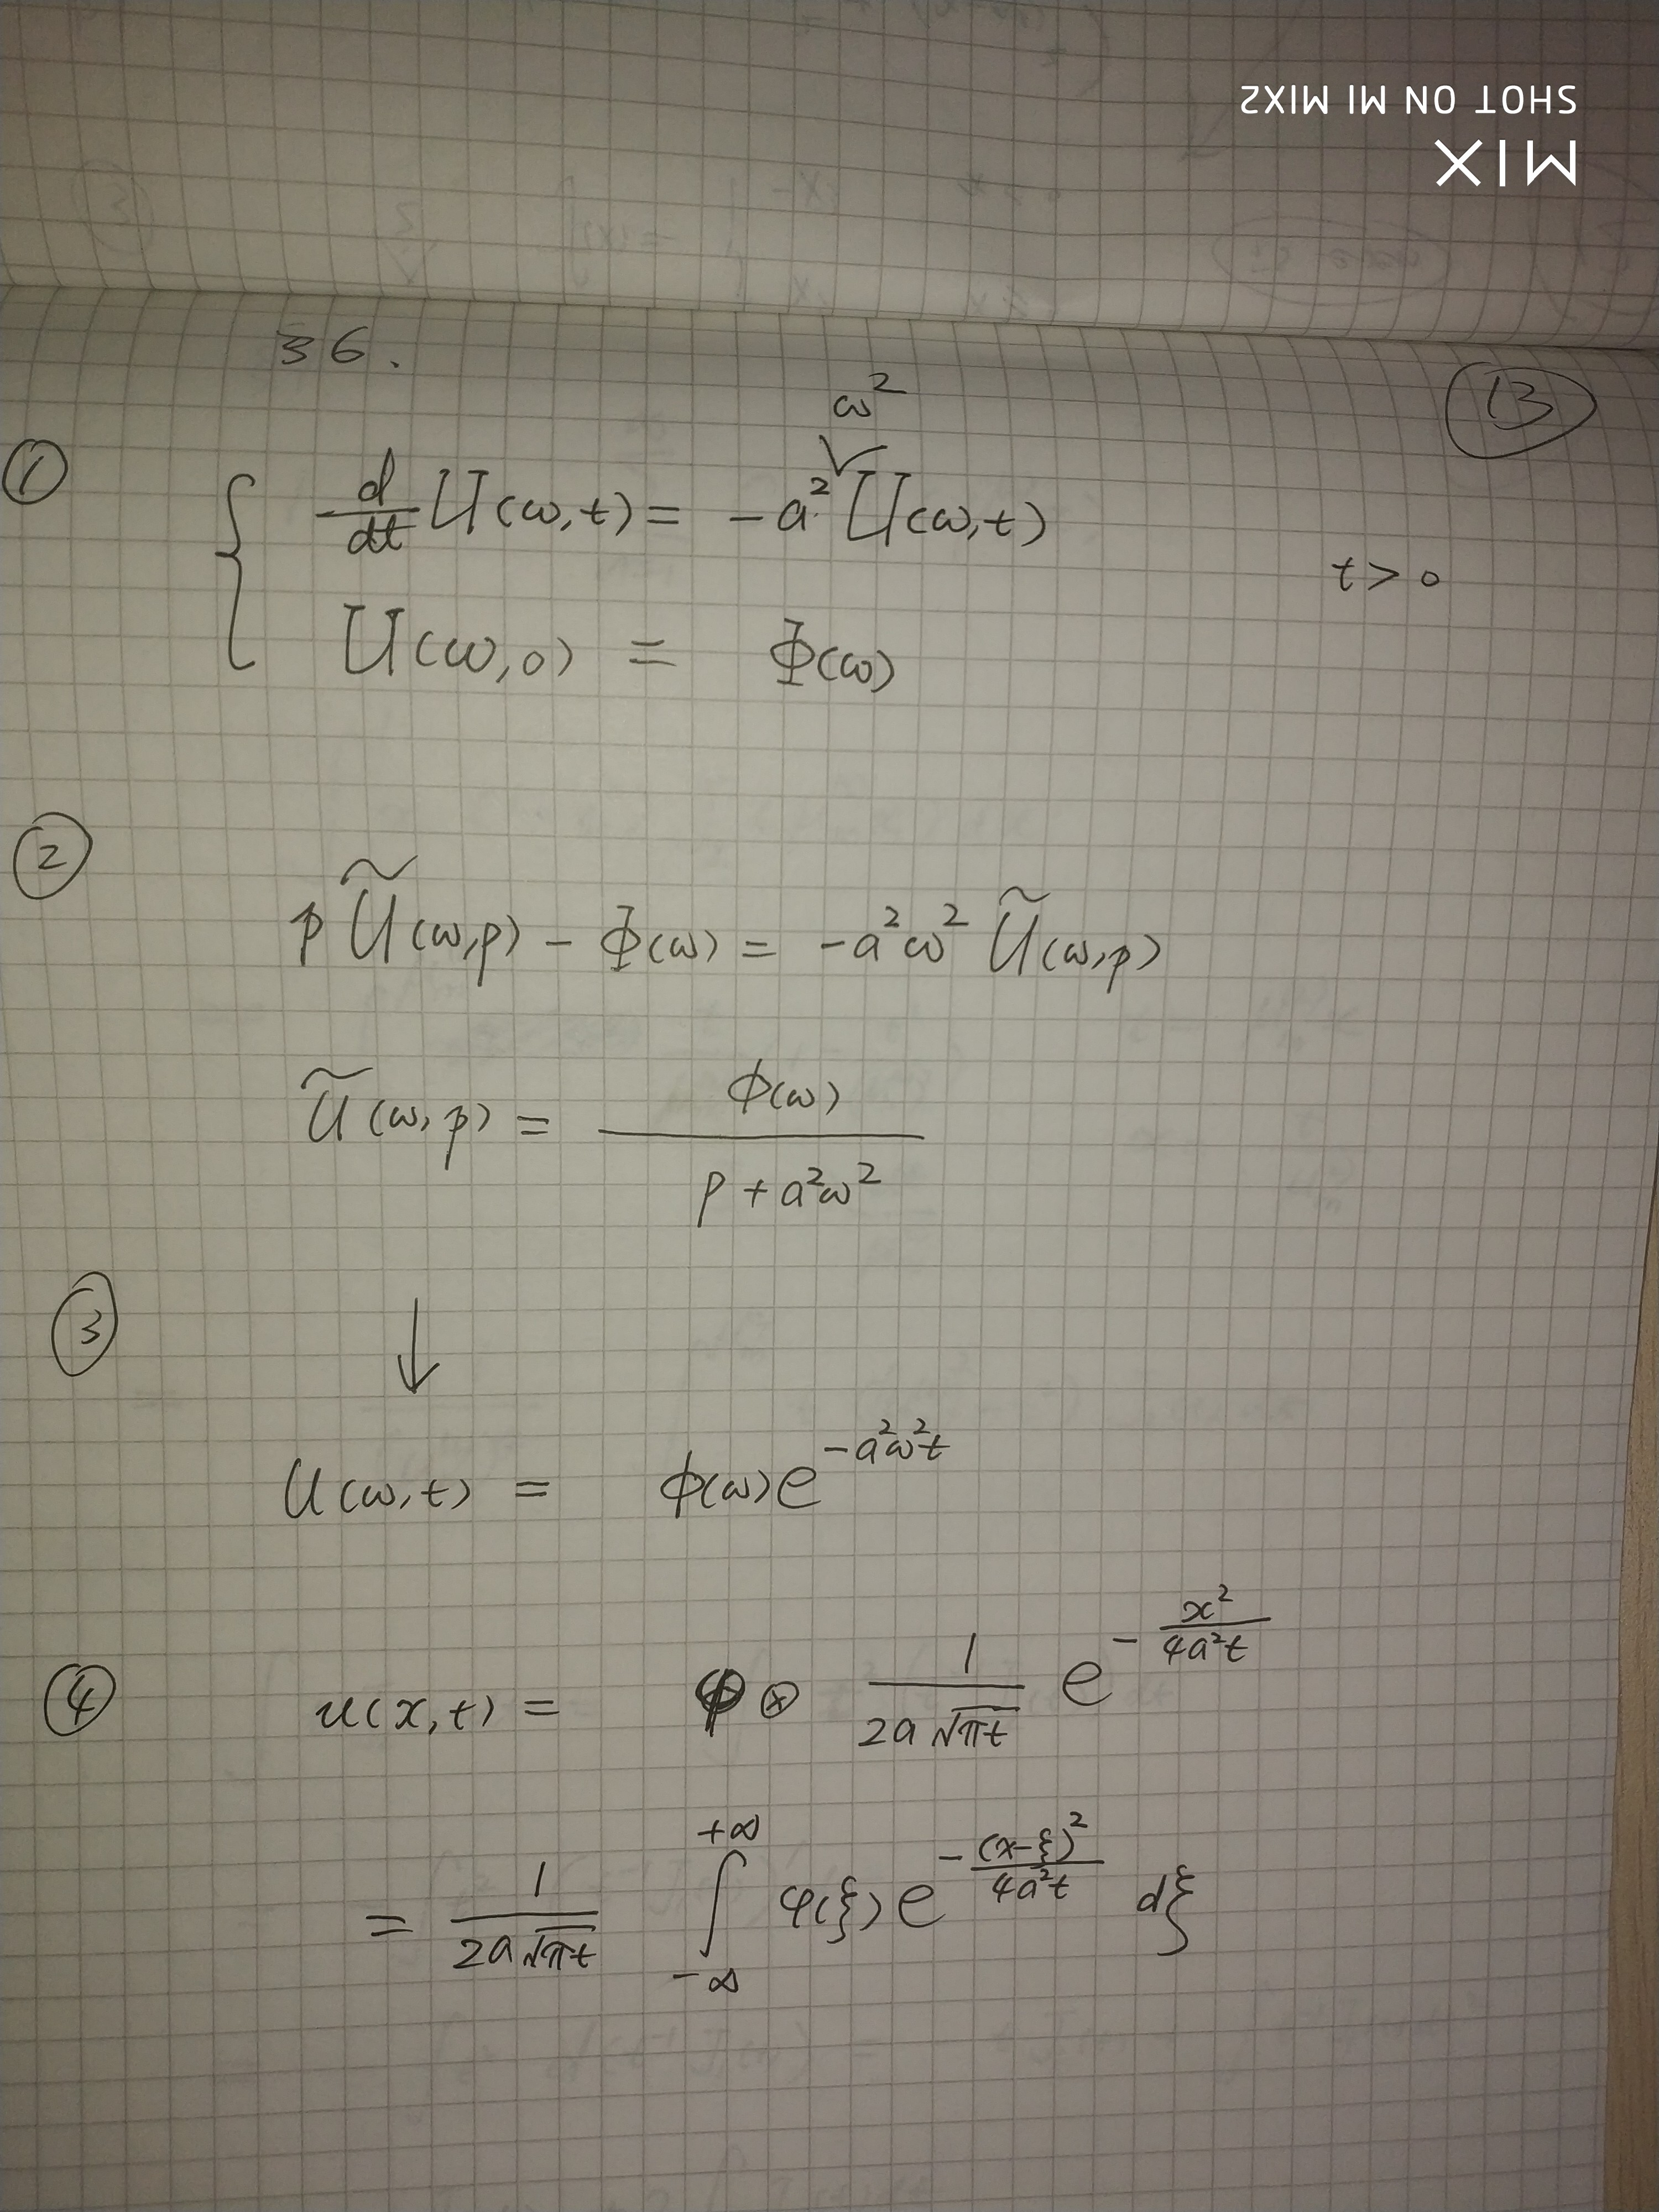 SHOT ON MI MIX2
MIX
36.
13
ω²
① { d/dt U(ω,t) = -a² U(ω,t)
t > 0
U(ω,0) = Φ(ω)
②
p Ũ(ω,p) - Φ(ω) = -a²ω² Ũ(ω,p)
Ũ(ω,p) = ϕ(ω) / (p + a²ω²)
③ ↓
U(ω,t) = ϕ(ω) e^(-a²ω²t)
④ u(x,t) = φ ⊗ 1/(2a√(πt)) e^(-x²/(4a²t))
= 1/(2a√(πt)) ∫_{-∞}^{+∞} φ(ξ) e^(-(x-ξ)²/(4a²t)) dξ